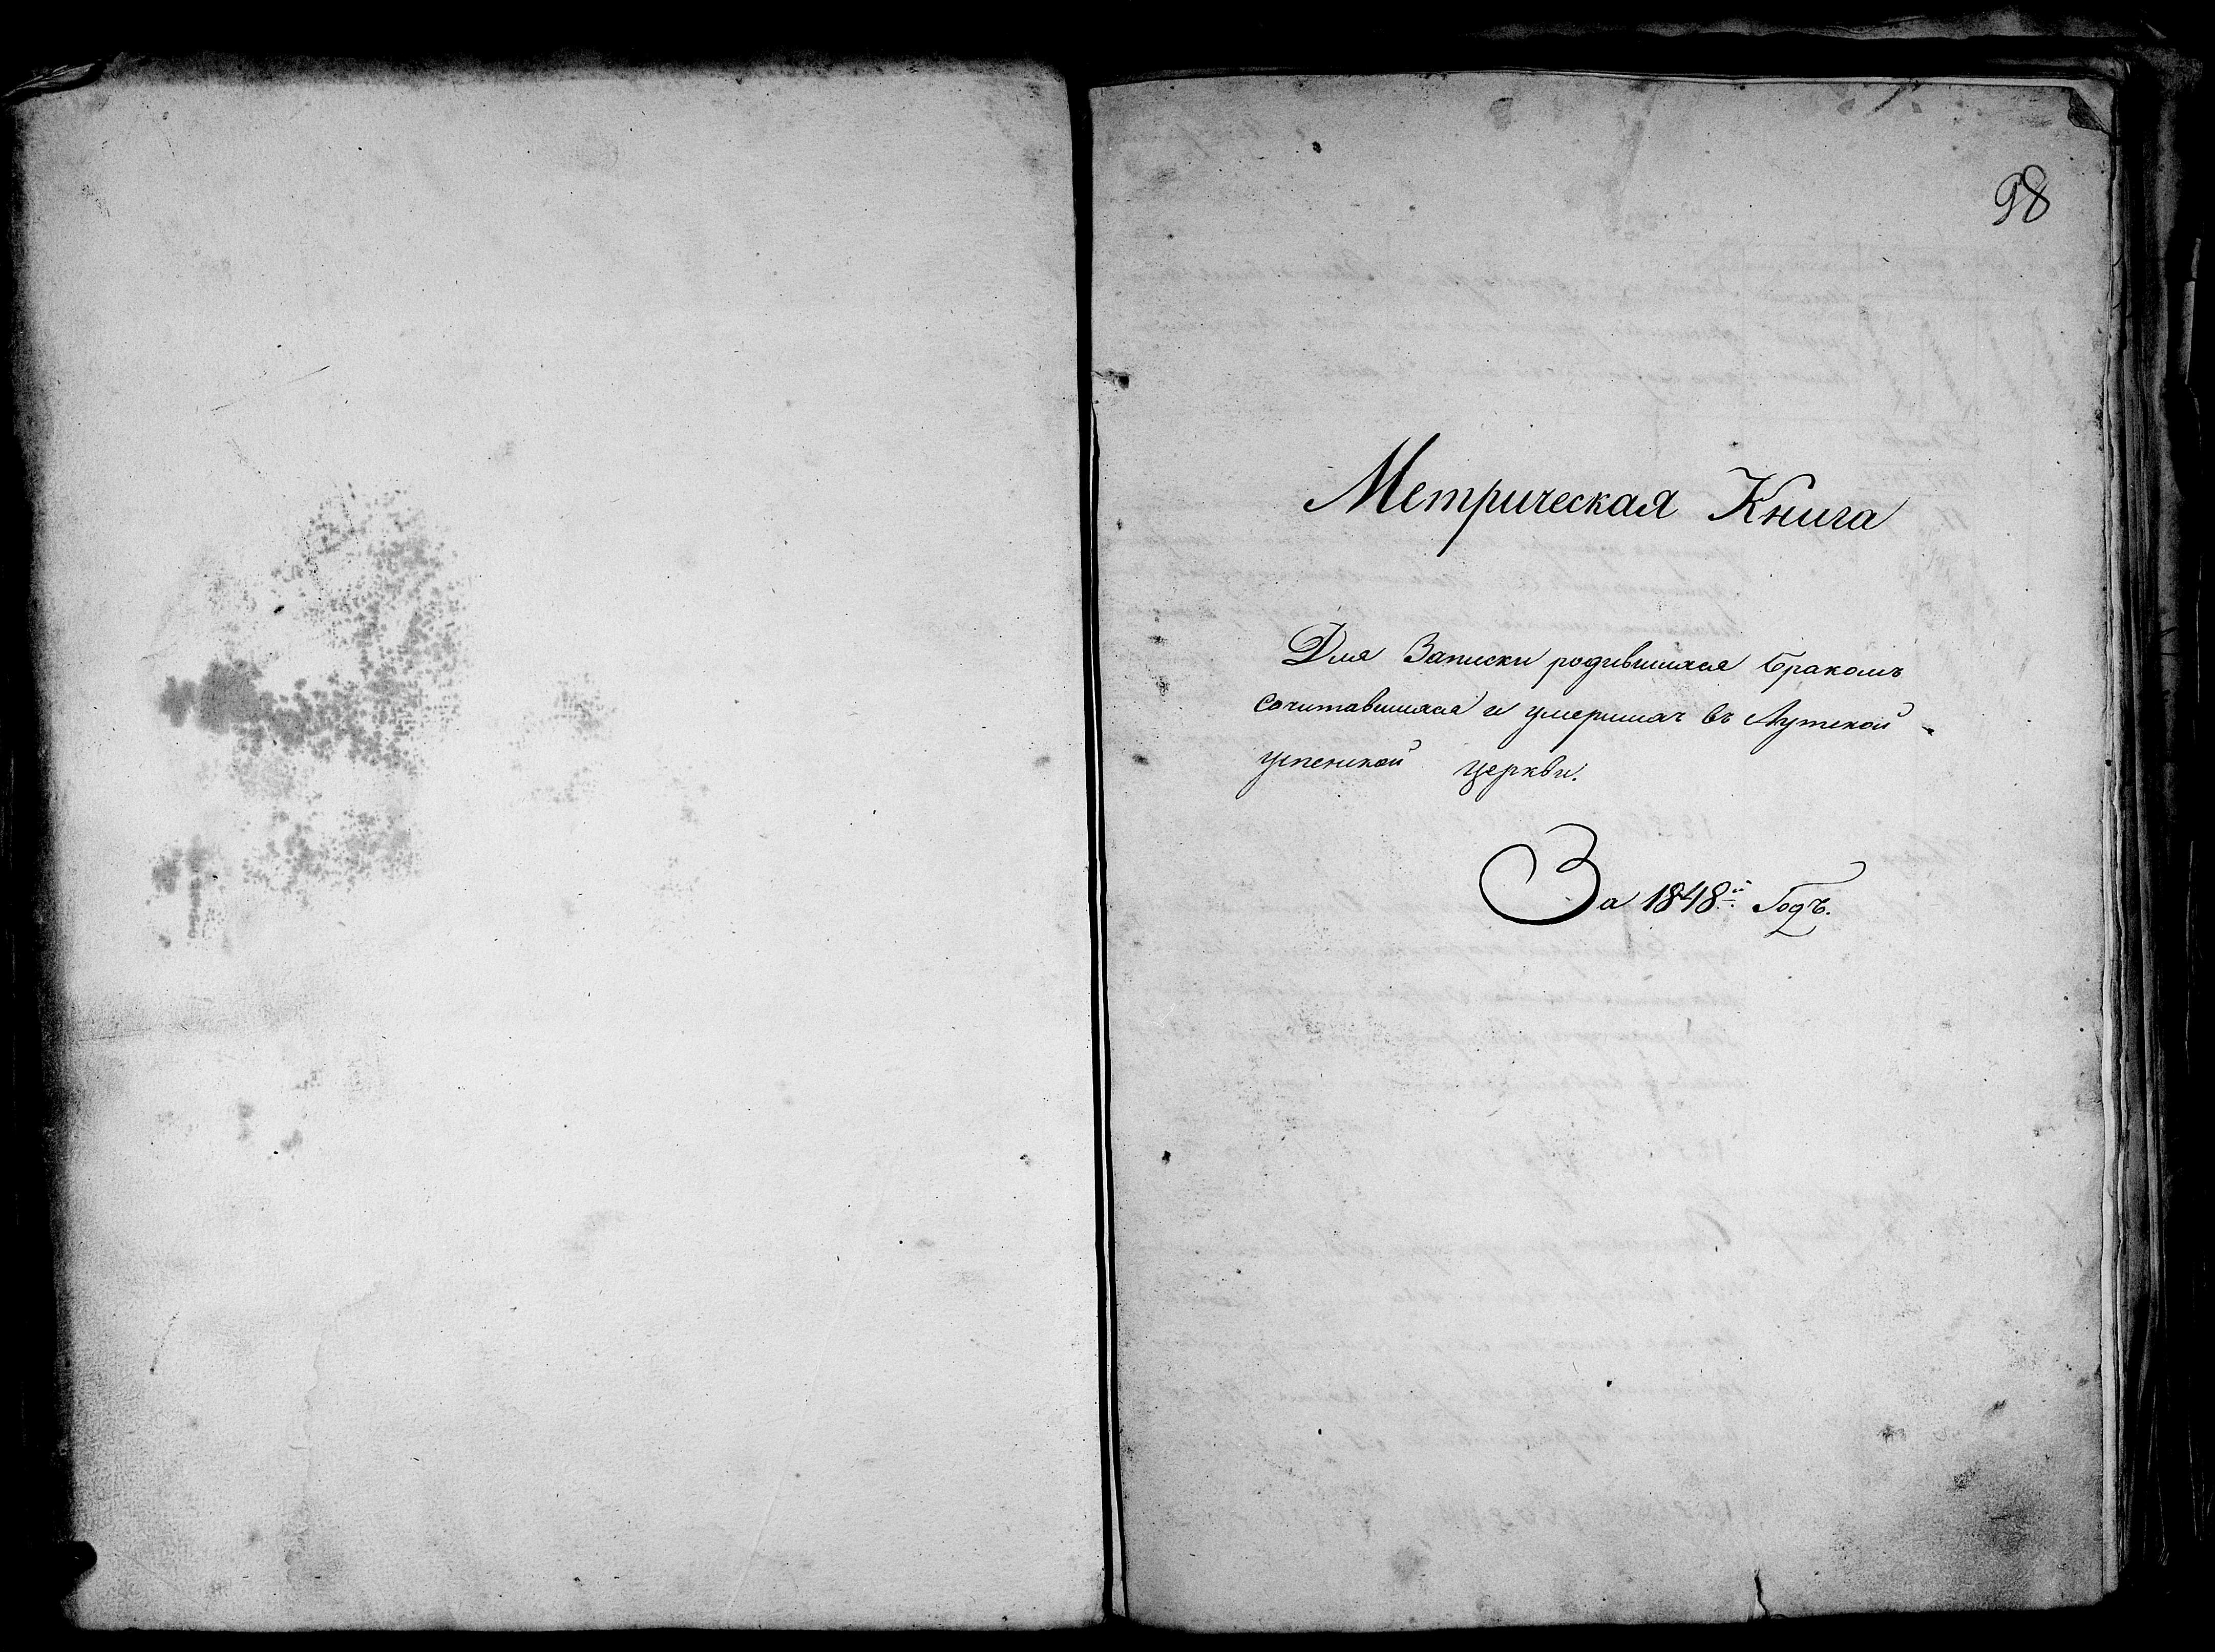 98
Метрическая Книга
Для Записки родившихся бракомъ
сочитавшихся и умершихъ въ Лутской
успенской церкви.
За 1848й Годъ.